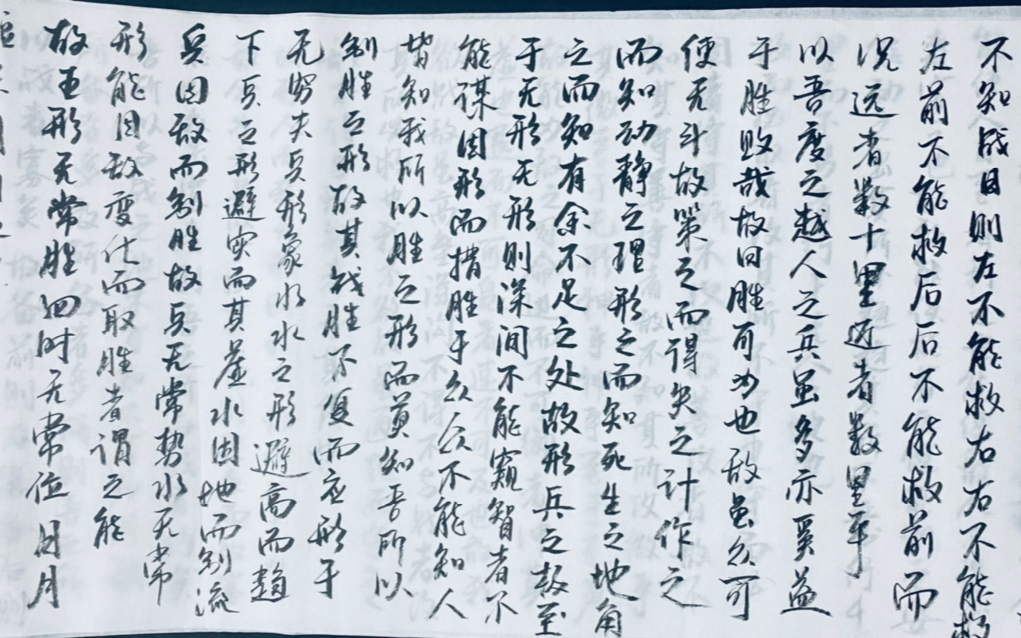 不知战日则左不能救右右不能救
左前不能救后后不能救前而
况远者数十里近者数里乎
以吾度之越人之兵虽多亦奚益
于胜败哉故曰胜可为也敌虽众可
使无斗故策之而得失之计作之
而知动静之理形之而知死生之地角
之而知有余不足之处故形兵之极至
于无形无形则深间不能窥智者不
能谋因形而措胜于众众不能知人
皆知我所以胜之形而莫知吾所以
制胜之形故其战胜不复而应形于
无穷夫兵形象水水之形避高而趋
下兵之形避实而其虚水因地而制流
兵因敌而制胜故兵无常势水无常
形能因敌变化而取胜者谓之能
故五形无常胜四时无常位日月